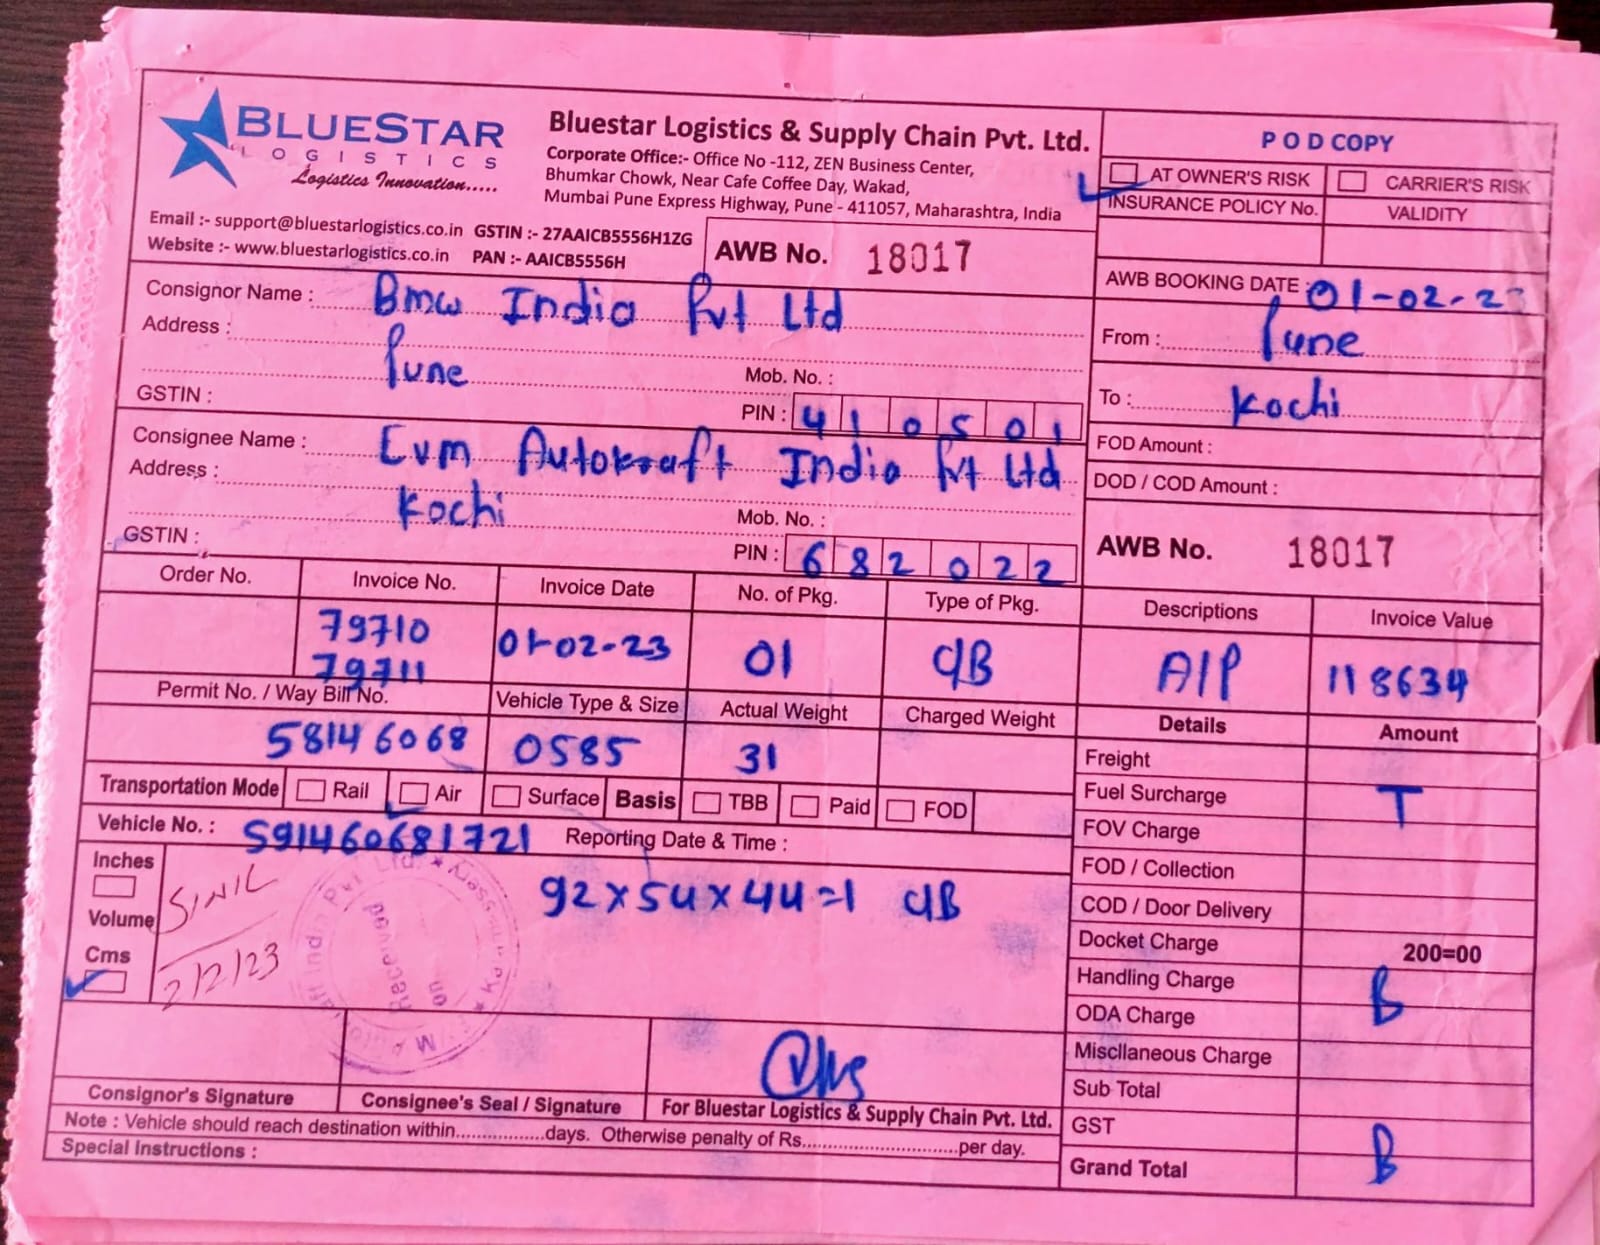 BLUESTAR
LOGISTICS
Logistics Innovation.....
Bluestar Logistics & Supply Chain Pvt. Ltd.
Corporate Office:- Office No -112, ZEN Business Center,
Bhumkar Chowk, Near Cafe Coffee Day, Wakad,
Mumbai Pune Express Highway, Pune - 411057, Maharashtra, India
Email :- support@bluestarlogistics.co.in GSTIN :- 27AAICB5556H1ZG
Website :- www.bluestarlogistics.co.in PAN :- AAICB5556H
AWB No. 18017
POD COPY
AT OWNER'S RISK CARRIER'S RISK
INSURANCE POLICY No. VALIDITY
AWB BOOKING DATE : 01-02-23
Consignor Name : Bmw India Pvt Ltd
Address : Pune
Mob. No. :
GSTIN : PIN : 410501
From : Pune
To : Kochi
FOD Amount :
DOD / COD Amount :
Consignee Name : Evm Autokraft India Pvt Ltd
Address : Kochi
Mob. No. :
GSTIN : PIN : 682022
AWB No. 18017
Order No. Invoice No. Invoice Date No. of Pkg. Type of Pkg. Descriptions Invoice Value
79710 01-02-23 01 CIB AIP 118634
79711
Permit No. / Way Bill No. Vehicle Type & Size Actual Weight Charged Weight Details Amount
58146068 0585 31
Transportation Mode Rail Air Surface Basis TBB Paid FOD
Vehicle No. : 591460681721 Reporting Date & Time :
Inches
Volume
Cms
SINIL
2/2/23
92x54x44=1 CIB
Received
on
Freight
Fuel Surcharge T
FOV Charge
FOD / Collection
COD / Door Delivery
Docket Charge 200=00
Handling Charge B
ODA Charge
Miscllaneous Charge
Sub Total
GST
Grand Total B
Consignor's Signature Consignee's Seal / Signature For Bluestar Logistics & Supply Chain Pvt. Ltd.
Note : Vehicle should reach destination within.................days. Otherwise penalty of Rs...............................per day.
Special Instructions :